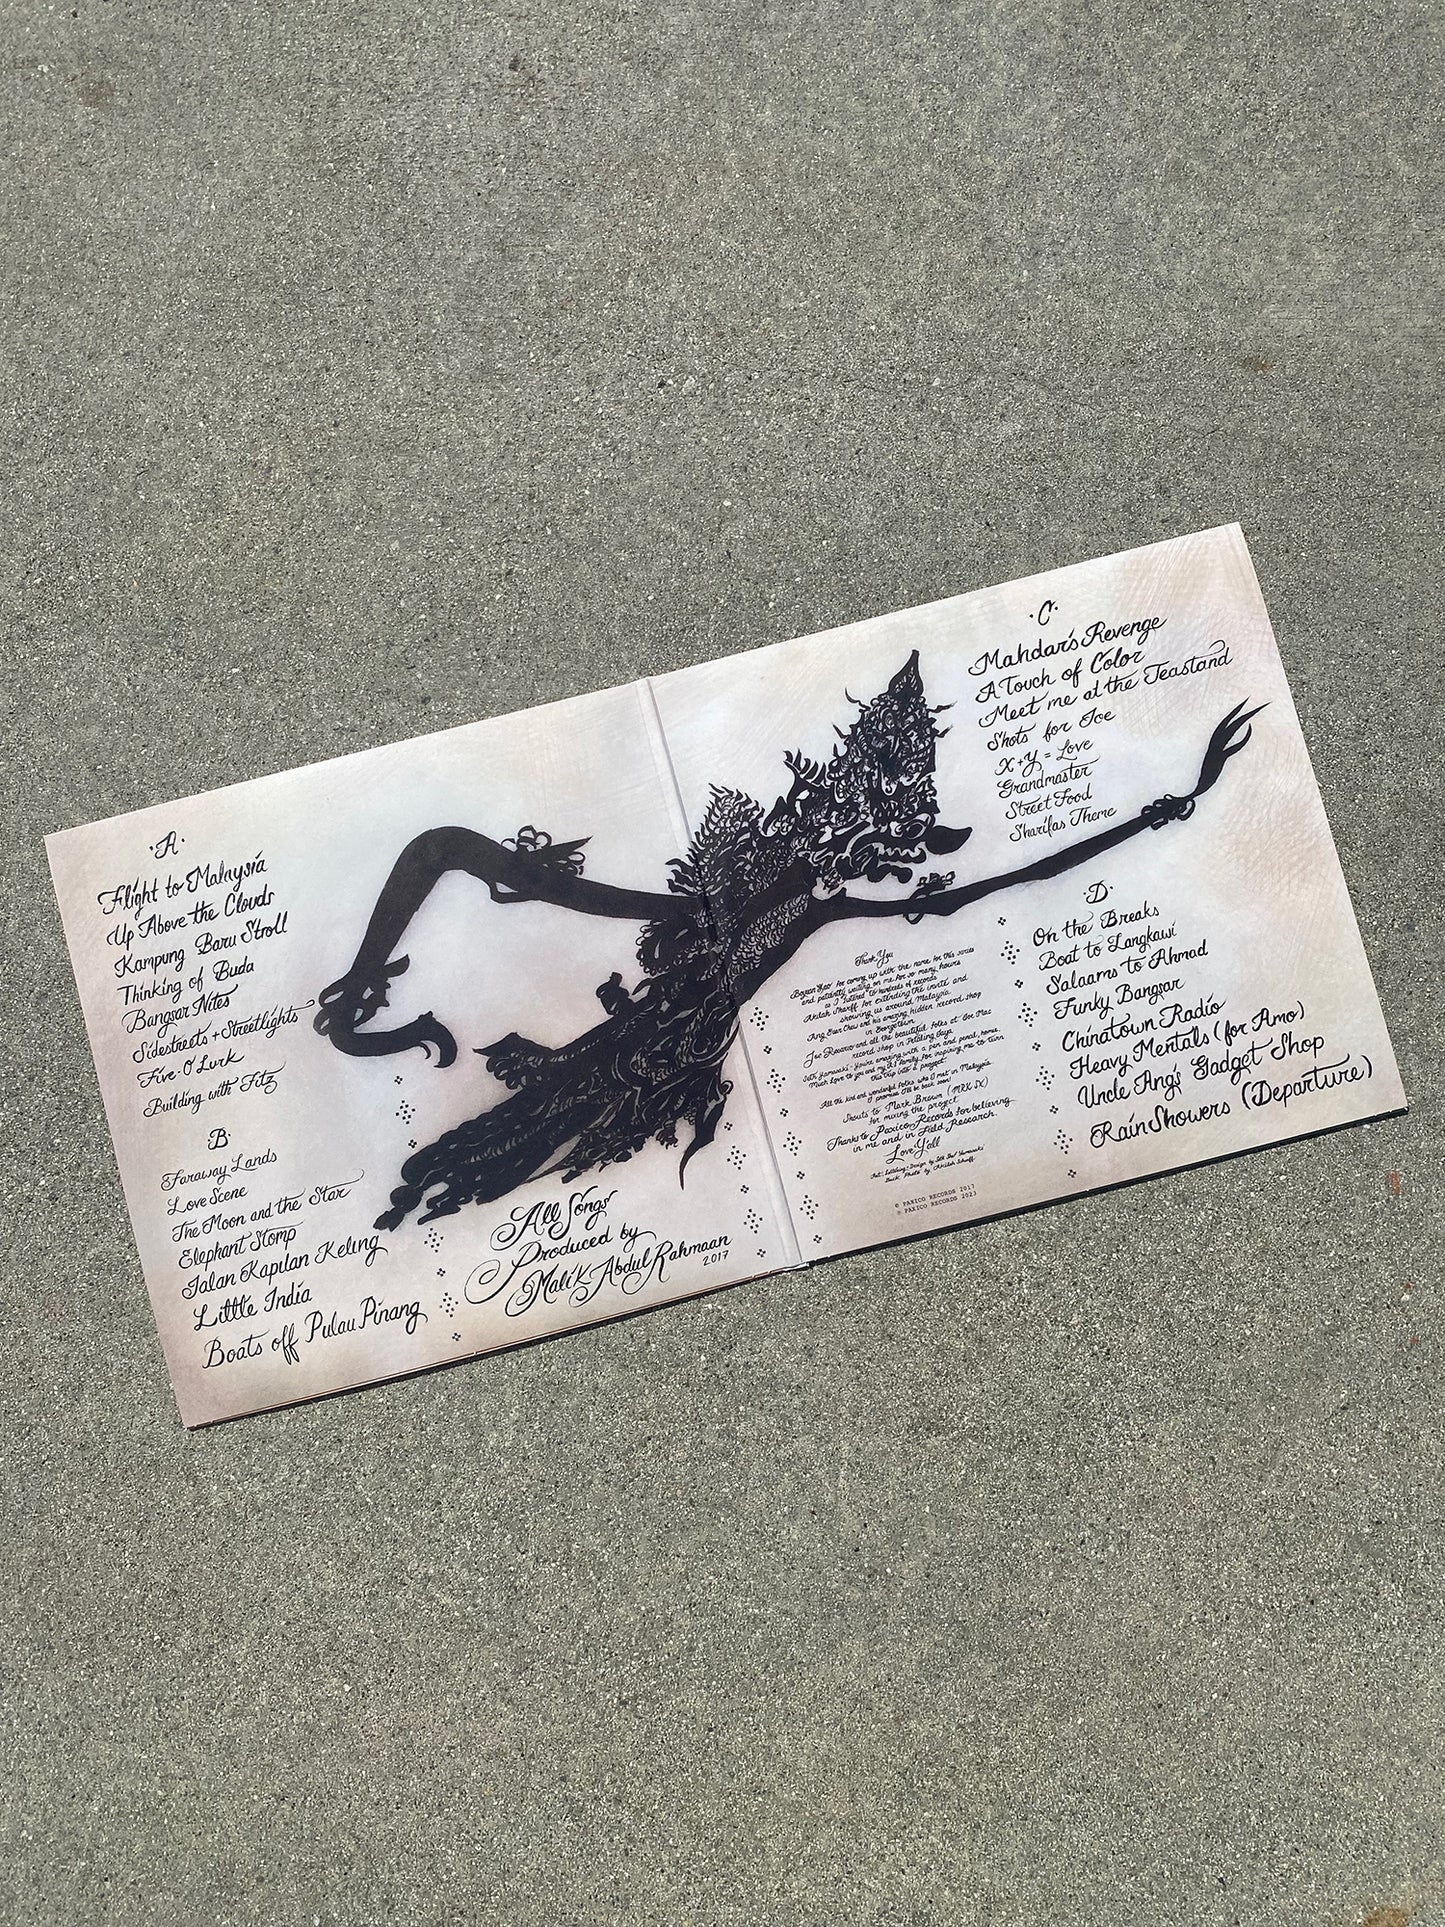 ·A·
Flight to Malaysia
Up Above the Clouds
Kampung Baru Stroll
Thinking of Buda
Bangsar Nites
Sidestreets + Streetlights
Five-O' Lurk
Building with Fitz
·B·
Faraway Lands
Love Scene
The Moon and the Star
Elephant Stomp
Jalan Kapitan Keling
Little India
Boats off Pulau Pinang
All Songs
Produced by
Malik Abdul Rahmaan
2017
Thank You
for coming up with the name for this series
and patiently waiting on me for so many hours
as I listened to hundreds of records
Akilah Shariff for extending the invite and
showing us around Malaysia.
Ang Eean Cheu and his amazing hidden record shop
in Georgetown
Joe Rosario and all the beautiful folks at Joe Mac
record shop in Petaling Jaya
Seth Yamasaki - You're amazing with a pen and pencil, homie.
Much Love to you and my family for inspiring me to turn
this trip into a project.
All the kind and wonderful folks who I met in Malaysia
I promise I'll be back soon!
Shouts to Mark Brown (MRK SX)
for mixing the project
Thanks to Paxico Records for believing
in me and in Field Research.
Love Y'all
© PAXICO RECORDS 2017
℗ PAXICO RECORDS 2023
·C·
Mahdar's Revenge
A Touch of Color
Meet me at the Teastand
Shots for Joe
X + Y = Love
Grandmaster
Street Food
Sharifas Theme
·D·
On the Breaks
Boat to Langkawi
Salaams to Ahmad
Funky Bangsar
Chinatown Radio
Heavy Mentals (for Amo)
Uncle Ang's Gadget Shop
Rain Showers (Departure)